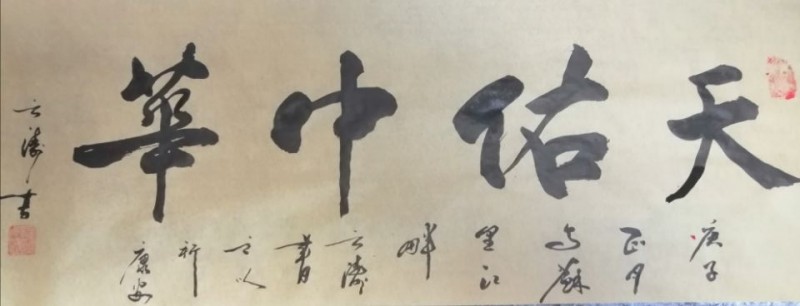 天佑中華
庚子
正月
於蘇
江
畔
云濤
書
之以
祈
康安
云濤書